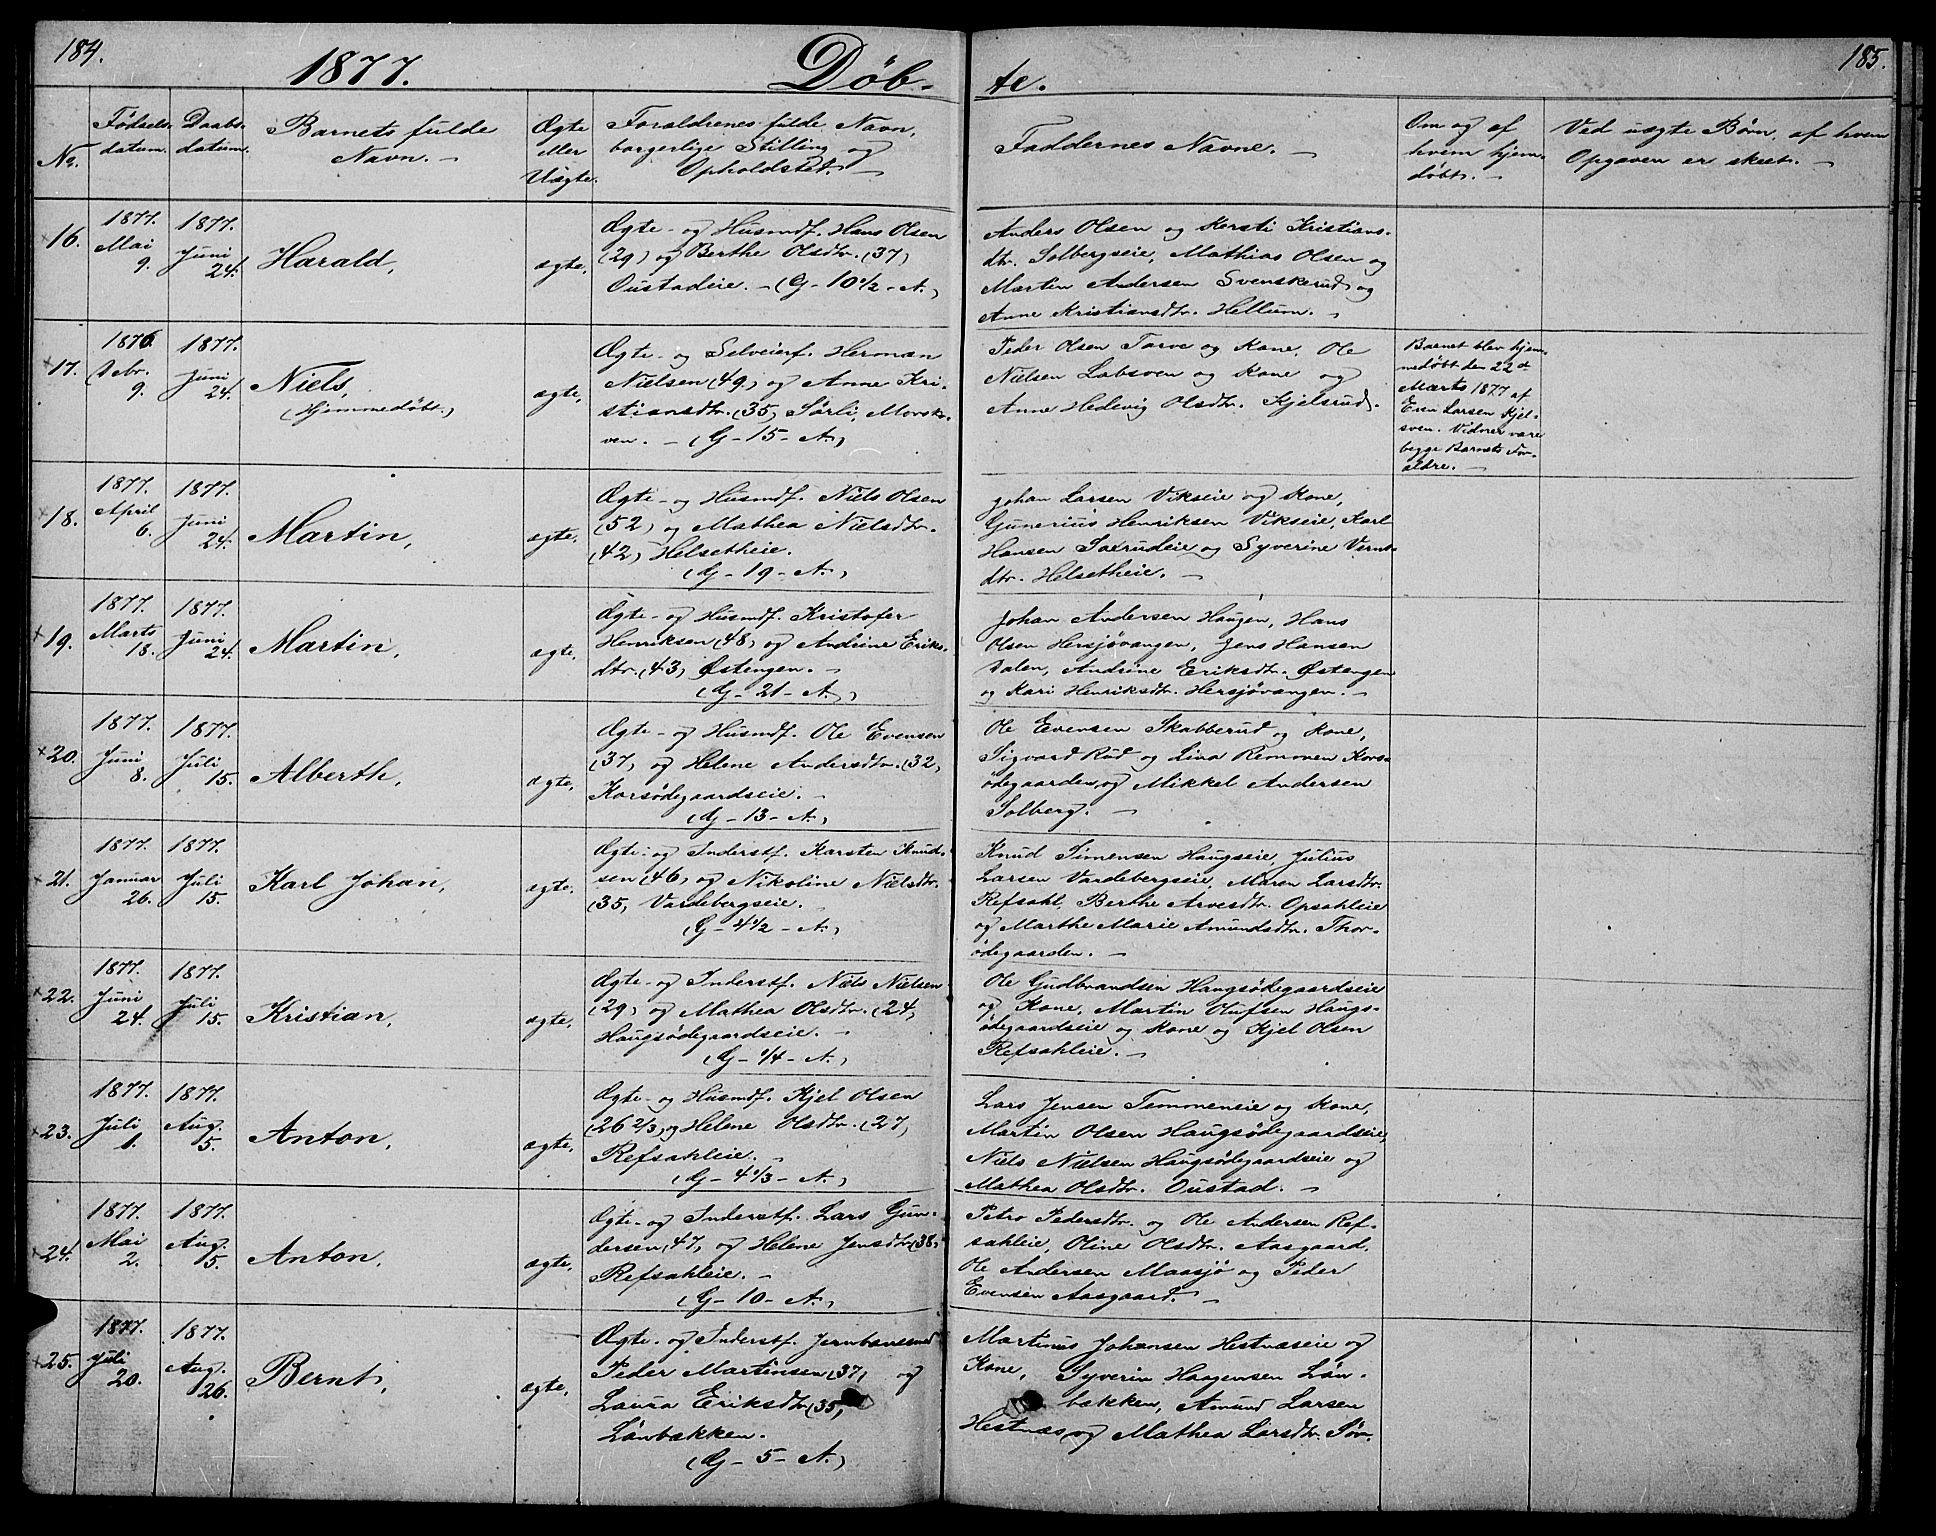 184.
1877.
Døb-
te.
185.
No.
Fødsels-
datum.
Daabs-
datum.
Barnets fulde
Navn. —
Ægte
eller
Uægte.
Forældrenes fulde Navn,
borgerlige Stilling og
Opholdsted. —
Faddernes Navne. —
Om og af
hvem hjem-
døbt. —
Ved uægte Børn, af hvem
Opgaven er skeet. —
16.
1877.
Mai
9.
1877.
Juni
24.
Harald,
ægte,
Ægte- og Husmdf. Hans Olsen
(29) og Berthe Olsdtr. (37)
Oustadeie. — (G - 10½ - A.)
Anders Olsen og Kersti Kristians-
dtr. Solbergseie, Mathias Olsen og
Martin Andersen Svenskerud og
Anne Kristiansdtr. Hellum. —
17.
1876
Debr.
9.
1877.
Juni
24.
Niels,
(Hjemmedøbt.)
ægte,
Ægte- og Selveierf. Herman
Nielsen (49) og Anne Kri-
stiansdtr. (35) Sørli, Morsko-
ven. — (G - 15 - A.)
Peder Olsen Tarve og Kone, Ole
Nielsen Labsven og Kone og
Anne Hedevig Olsdtr. Kjelsrud.
Barnet blev hjem-
medøbt den 22de
Marts 1877 af
Even Larsen Kjel-
sven. Vidner vare
begge Barnets For-
ældre. —
18.
1877.
April
6.
1877.
Juni
24.
Martin,
ægte,
Ægte- og Husmdf. Niels Olsen
(52) og Mathea Nielsdtr.
(42) Helsetheie.
(G - 19 - A.)
Johan Larsen Vikseie og Kone,
Gunerius Henriksen Vikseie, Karl
Hansen Saxrudeie og Syverine Bernt-
dtr. Helsetheie. —
19.
1877.
Marts
13.
1877.
Juni
24.
Martin,
ægte,
Ægte- og Husmdf. Kristofer
Henriksen (48) og Andrine Eriks-
dtr. (43) Østengen. —
(G - 21 - A.)
Johan Andersen Haugen, Hans
Olsen Hersjøvangen, Jens Hansen
Dalen, Andrine Eriksdtr. Østengen
og Kari Henriksdtr. Hersjøvangen. —
20.
1877.
Juni
8.
1877.
Juli
15.
Alberth,
ægte,
Ægte- og Husmdf. Ole Evensen
(37) og Helene Andersdtr. (32)
Korsødegaardseie. —
(G - 13 - A.)
Ole Evensen Skabberud og Kone,
Sigvard Rud og Lina Remmen Kors-
ødegaarden, og Mikkel Andersen
Solberg. —
21.
1877.
Januar
26.
1877.
Juli
15.
Karl Johan,
ægte,
Ægte- og Inderstf. Karsten Knud-
sen (46) og Nikoline Nielsdtr.
(35) Vardebergseie.
(G - 4½ - A.)
Knud Simensen Haugseie, Julius
Larsen Vardebergseie, Maren Larsdtr.
Refsahl, Berthe Arvesdtr. Opsahleie
og Marthe Marie Amundsdtr. Thor-
ødegaarden. —
22.
1877.
Juni
24.
1877.
Juli
15.
Kristian,
ægte,
Ægte- og Inderstf. Niels Nielsen
(29) og Mathea Olsdtr. (24)
Haugsødegaardseie. —
(G - ¼ - A.)
Ole Gudbrandsen Haugsødegaardseie
og Kone, Martin Olufsen Haugs-
ødegaardseie og Kone og Kjel Olsen
Refsahleie. —
23.
1877.
Juli
1.
1877.
Aug.
5.
Anton,
ægte,
Ægte- og Husmdf. Kjel Olsen
(26 2/3) og Helene Olsdtr. (27)
Refsahleie. —
(G - 4⅓ - A.)
Lars Jensen Temmeneie og Kone,
Martin Olsen Haugsødegaardseie
Niels Nielsen Haugsødegaardseie og
Mathea Olsdtr. Oustad. —
24.
1877.
Mai
2.
1877.
Aug.
5.
Anton,
ægte,
Ægte- og Inderstf. Lars Gun-
dersen (47) og Helene Jensdtr. (38)
Refsahleie. —
(G - 10 - A.)
Petro Pedersdtr. og Ole Andersen Ref-
sahleie, Oline Olsdtr. Aasgaard,
Ole Andersen Maasjø og Peder
Evensen Aasgaard. —
25.
1877.
Juli
20.
1877.
Aug.
26.
Bernt,
ægte,
Ægte- og Inderstf. Jernbanemd
Peder Martinsen (37) og
Laura Eriksdtr. (35)
Lønbækken.
(G - 5 - A.)
Martinus Johansen Hestnæseie og
Kone, Syverin Haagensen Løn-
bækken, Amund Larsen
Hestnæs og Mathea Larsdtr. Søv-